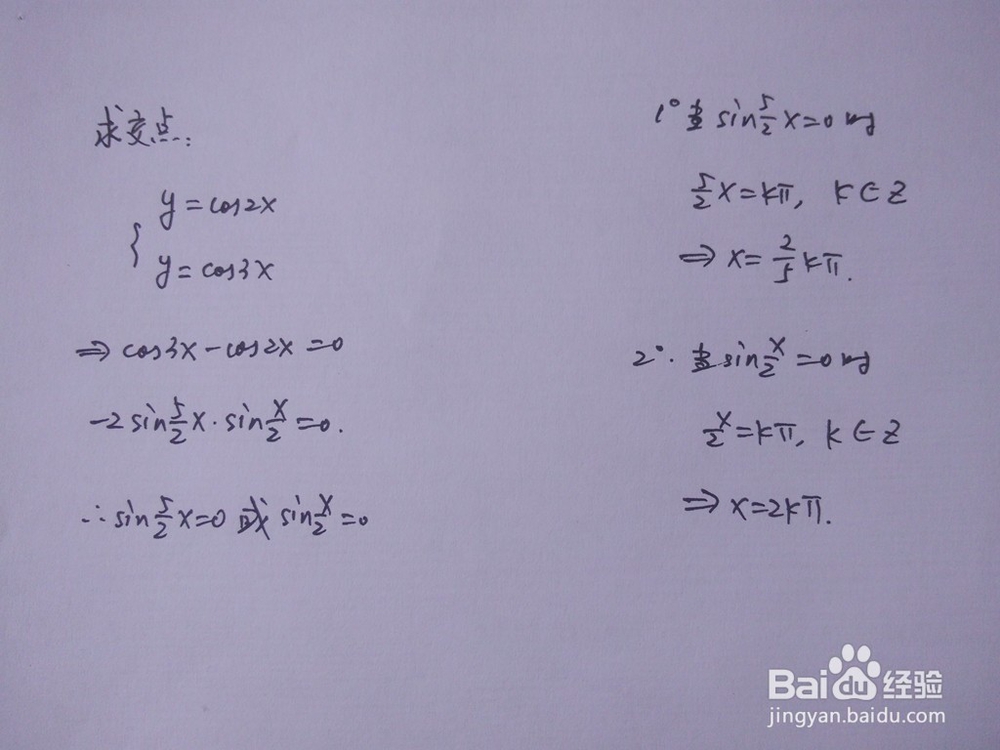 求交点:
{ y=cos2x
y=cos3x
⇒ cos3x-cos2x=0
-2sin5/2x·sinx/2=0.
∴sin5/2x=0 或 sinx/2=0
1° 当sin5/2x=0时
5/2x=kπ, k∈Z
⇒ x=2/5kπ.
2°. 当sinx/2=0时
x/2=kπ, k∈Z
⇒ x=2kπ.
Baidu经验
jingyan.baidu.com